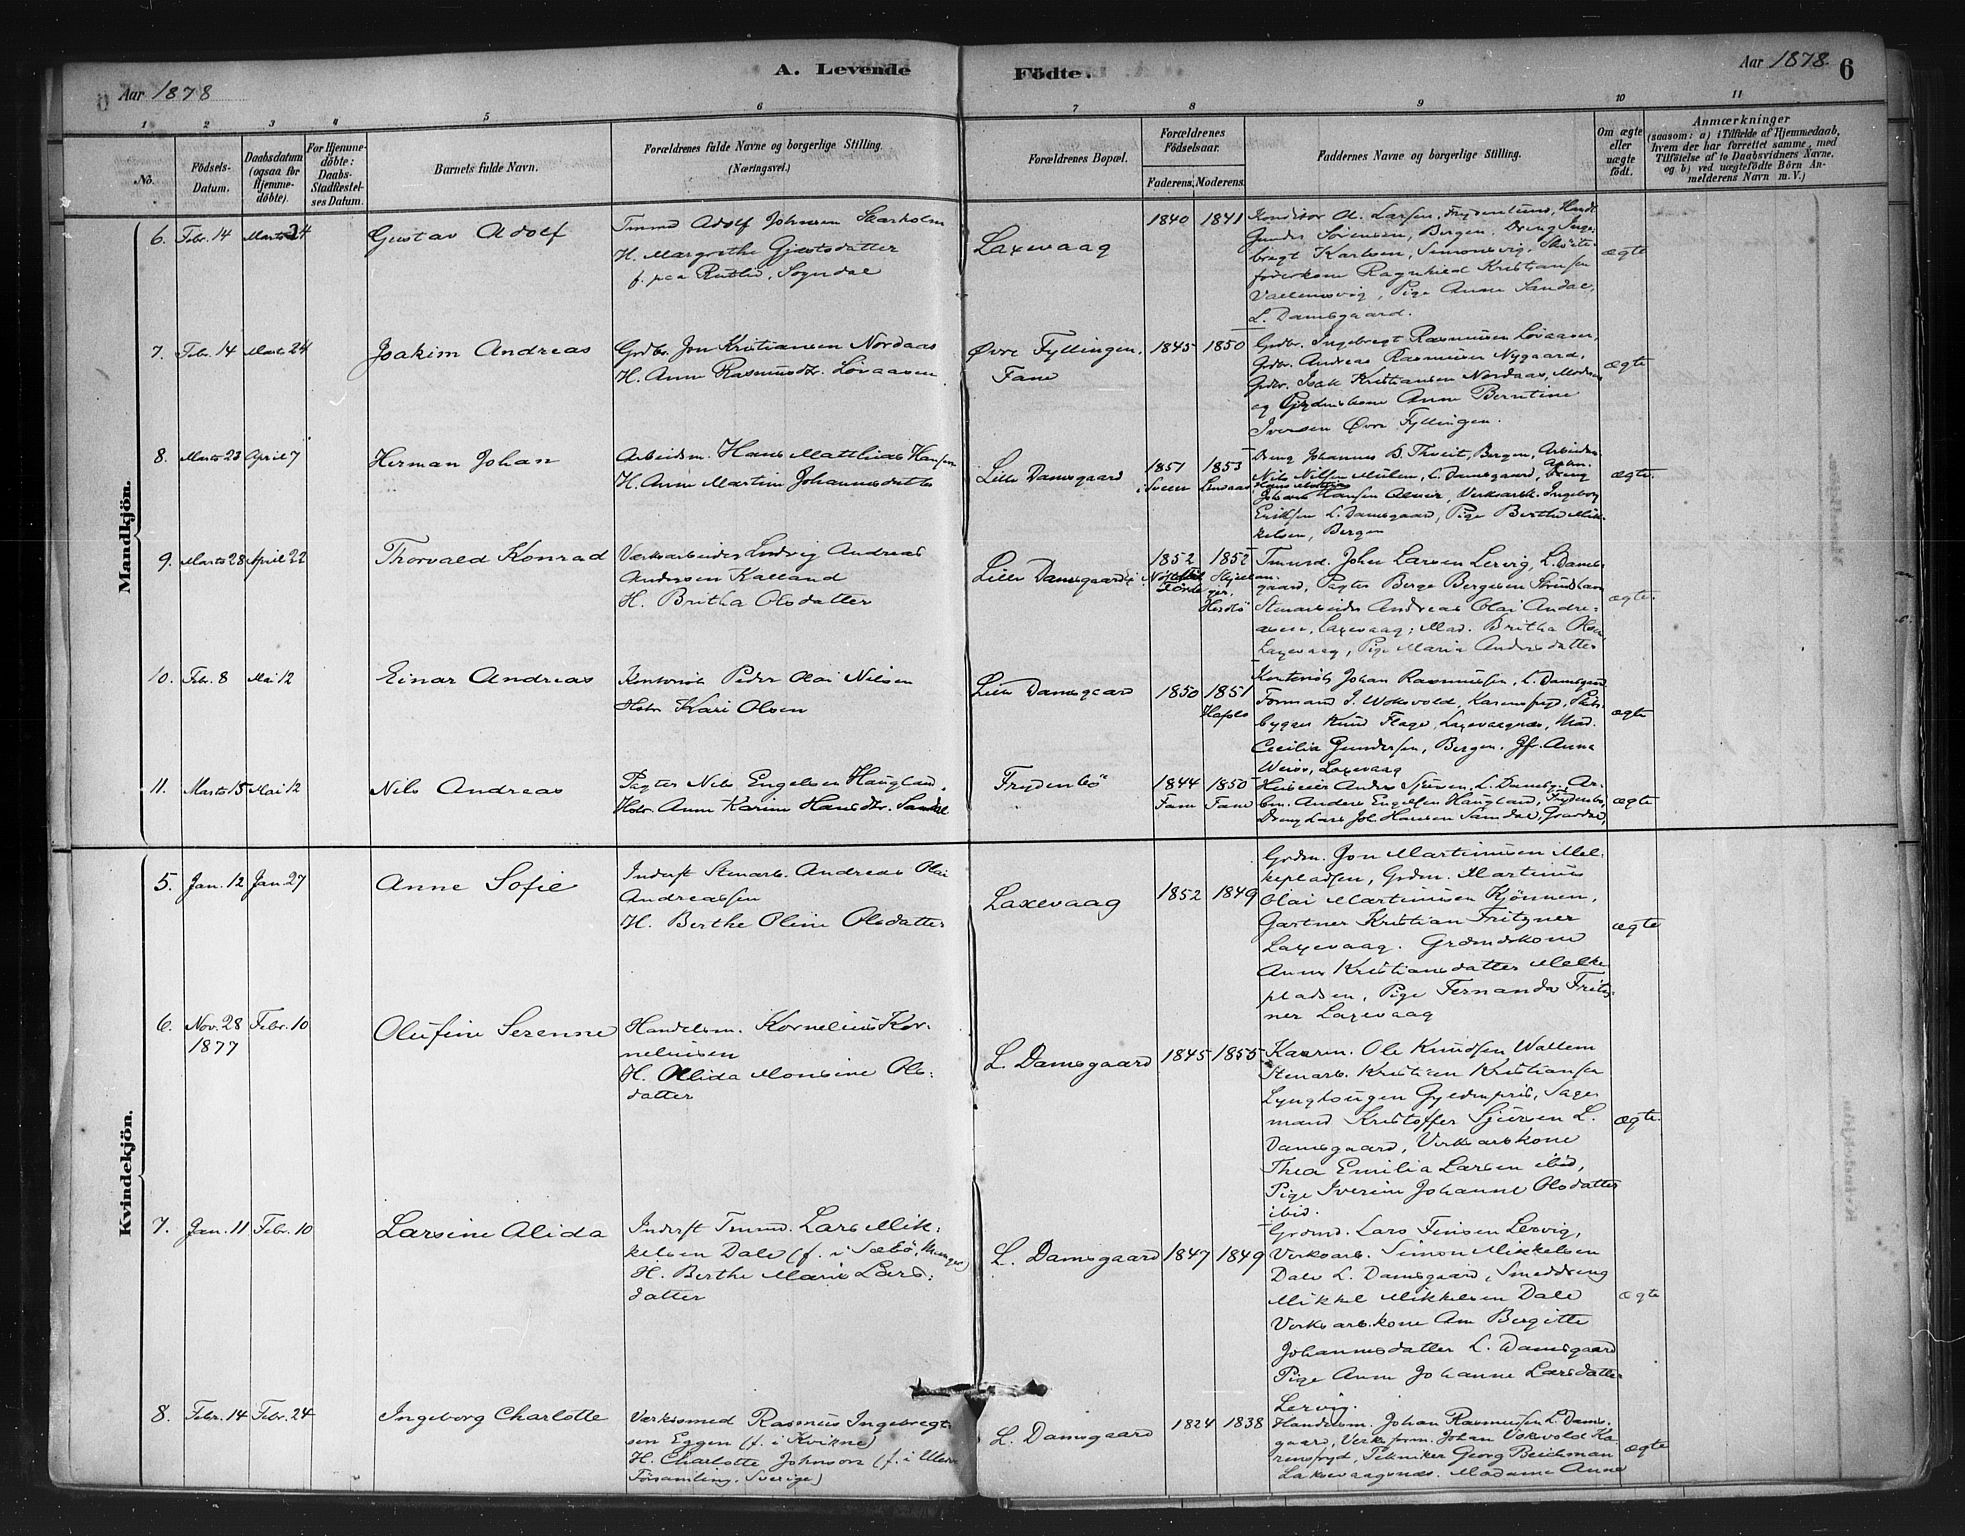 A. Levende Födte.
Aar 1878
Aar 1878. 6
1 2 3 4 5 6 7 8 9 10 11
No.
Födsels-Datum.
Daabsdatum (ogsaa for Hjemmedöbte).
For Hjemmedøbte: Daabs-Stadfæstelses Datum.
Barnets fulde Navn.
Forældrenes fulde Navne og borgerlige Stilling.
(Næringsvei.)
Forældrenes Bopæl.
Forældrenes Födselsaar.
Faderens. Moderens.
Faddernes Navne og borgerlige Stilling.
Om ægte eller uægte födt.
Anmærkninger
(saasom: a) i Tilfælde af Hjemmedaab, hvem der har forrettet samme, med Tilföielse af to Daabsvidners Navne, og b) ved uægtefödte Börn Anmelderens Navn m. V.)
Mandkjön.
6. Febr. 14 Marts 24 Gustav Adolf
Tmmd Adolf Johnsen
H. Margrethe Gjertsdatter
f. paa Rutlid, Sogndal
Laxevaag 1840 1841
Konditor A. Larsen, Frydenlund,
Gunder Sørensen, Bergen. Dreng Inge-
bregt Karlsen, Simonsvig,
Ragnhild Kristiansen
Pige Anne Sandal,
L. Damsgaard.
ægte
7. Febr. 14 Marts 24 Joakim Andreas
Grdbr. Jon Kristiansen Nordaas
H. Anne Rasmusdtr. Løvaasen
Øvre Fyllingen,
Fane
1845 1850
Grdbr. Ingebregt Rasmusen Løvaasen,
Grdbr. Andreas Rasmusen Nygaard,
Grdbr. Isak Kristiansen Nordaas, Moderen
og Anne Berntine
Iversen Øvre Fyllingen.
ægte
8. Marts 23 April 7 Herman Johan
Arbeidsm. Hans Matthias Hansen
H. Anne Martine Johannesdatter
Lille Damsgaard
1851 1853
Lindaas
Dreng Johannes B. Thveit, Bergen, Arbeidsm.
Nils Nilsen Mülen, L. Damsgaard,
Johans Hansen Verksarb. Ingeborg
Eriksen L. Damsgaard, Pige Berthe Mik-
kelsen, Bergen
ægte.
9. Marts 28 April 22 Thorvald Konrad
Værksarbeider Ludvig Andreas
Andersen Kalland
H. Britha Olsdatter
Lille Damsgaard
1852 1852
Førde
Herdlø
Tmmd. John Larsen Lervig, L. Dams-
gaard, Pagter Berge Bergesen
Stenarbeider Andreas Olai Andre-
asen, Laxevaag; Mad. Britha Olsen
Laxevaag, Pige Maria Andersdatter
ægte.
10. Febr. 8 Mai 12 Einar Andreas
Kontorist Peder Olai Nilsen
Hstr. Kari Olsen
Lille Damsgaard
1850 1851
Hafslo
Kontorist Johan Rasmussen, L. Damsgaard
Formand J. Wokevold, Karensfryd, Skibs-
bygger Knud Flage, Laxevaagnæs, Mad.
Cecilia Gundersen, Bergen. Jf. Anna
Laxevaag
ægte
11. Marts 15 Mai 12 Nils Andreas
Pagter Nils Engelsen Haugland,
Hstr. Anne Karine Hansdtr. Sandal
Frydenbö
1844 1850
Fane Fane
Huseier Anders L. Damsg., Ar-
bm. Anders Engelsen Haugland, Frydenbö,
Dreng Lars Joh. Hansen Sandal,
ægte
Kvindekjön.
5. Jan. 12 Jan. 27 Anne Sofie
Inderst Stenarb. Andreas Olai
Andreassen
H. Berthe Oline Olsdatter
Laxevaag 1852 1849
Grdm. Jon Martinusen Mel-
kepladsen, Grdm. Martinus
Olai Martinusen Kjønnen,
Gartner Kristian Fritzner
Laxevaag. Grdmdskone
Anne Kristiansdatter Melke
pladsen, Pige Fernanda Fritz-
ner Laxevaag
ægte
6. Nov. 28 Febr. 10 Olufine Serenne
1877
Handelsm. Kornelius Kor-
neliusen
H. Alida Monsine Ols-
datter
L. Damsgaard 1845 1855
Ole Knudsen Wallem
Stenarb. Kristian Kristiansen
Lynghougen Gyldenpris, Sager
mand Kristoffer Sjursen L.
Damsgaard, Verksarbkone
Thea Emilia Larsen ibid,
Pige Iverine Johanne Olsdatter
ibid.
ægte.
7. Jan. 11 Febr. 10 Larsine Alida
Inderst Tmmd. Lars Mik-
kelsen Dale (f. i Sæbö, Manger)
H. Berthe Marie Lars-
datter
L. Damsgaard 1847 1849
Grdmd. Lars Finsen Lervig,
Verksarb. Simon Mikkelsen
Dale L. Damsgaard, Smeddreng
Mikkel Mikkelsen Dale
Verksarb.kone Ane Bergitte
Johannesdatter L. Damsgaard
Pige Anne Johanne Larsdatter
Lervig.
ægte
8. Febr. 14 Febr. 24 Ingeborg Charlotte
Værksmed Rasmus Ingebregt-
sen Eggen (f. i Kvikne)
H. Charlotte Johnson (f. i
Församling. Sverige)
L. Damsgaard 1824 1838
Handelsm. Johan Rasmussen L. Dams-
gaard, Verksform. Johan Wokvold Ka-
rensfryd, Tekniker Georg Beichman
Laksevaagsnæs. Madame Anne
ægte